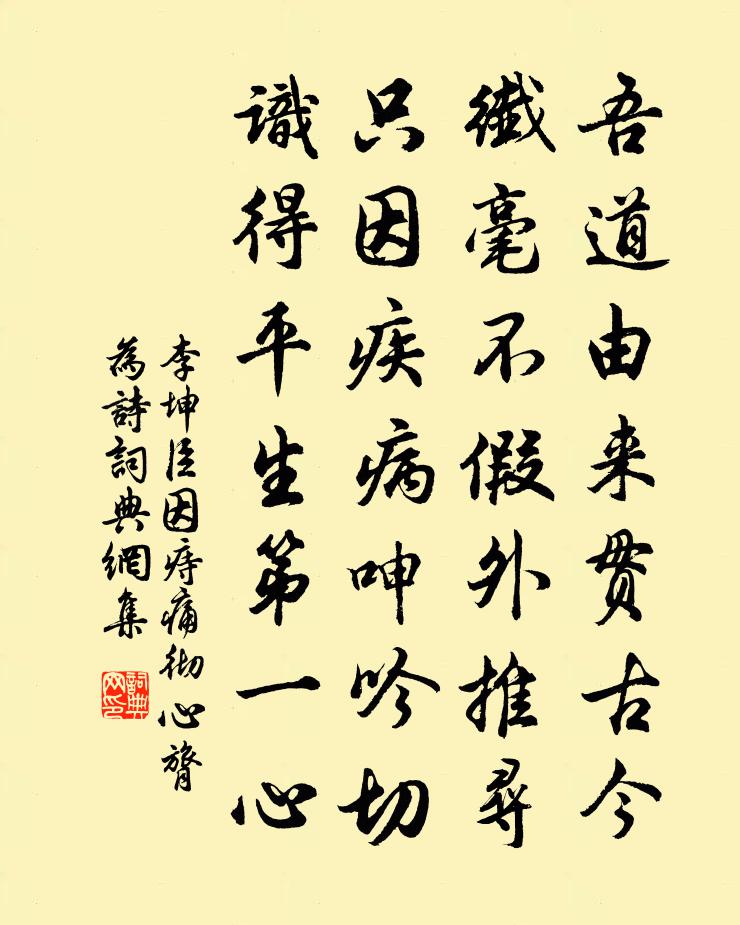 吾道由来贯古今
纖毫不假外推尋
只因疾病呻吟切
識得平生第一心
李坤臣因痔痛彻心膂
為詩詞典網集
詞典网印